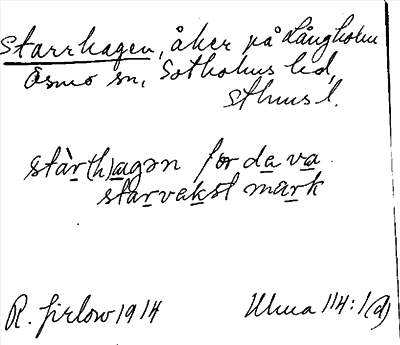 Starrhagen, åker på Långholm
Ösmo sn, Sotholms hd,
Sthms l.
stàr(h)agən for da va
starvakst mark
R. Firlow 1914
Ulma 114:1(d)